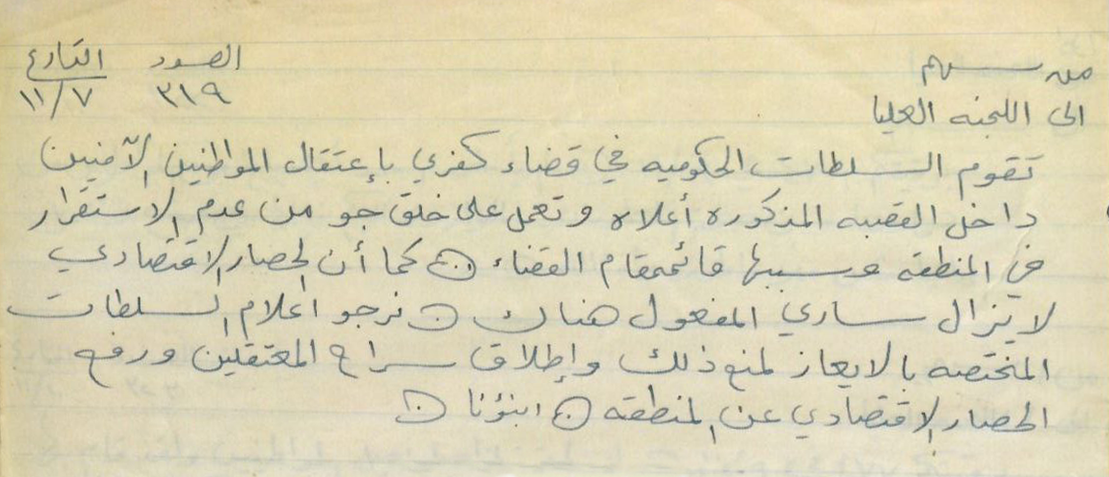 من سهم العدد التاريخ
٣١٩ ١١/٧
الى اللجنه العليا
تقوم السلطات الحكوميه في قضاء كفري بإعتقال المواطنين الآمنين
داخل القصبه المذكوره أعلاه وتعمل على خلق جو من عدم الاستقرار
في المنطقه وسببها قائممقام القضاء ن كما أن الحصار الاقتصادي
لا يزال ساري المفعول هناك ن نرجو اعلام السلطات
المختصه بالايعاز لمنع ذلك وإطلاق سراح المعتقلين ورفع
الحصار الاقتصادي عن المنطقه ن انبؤنا ن